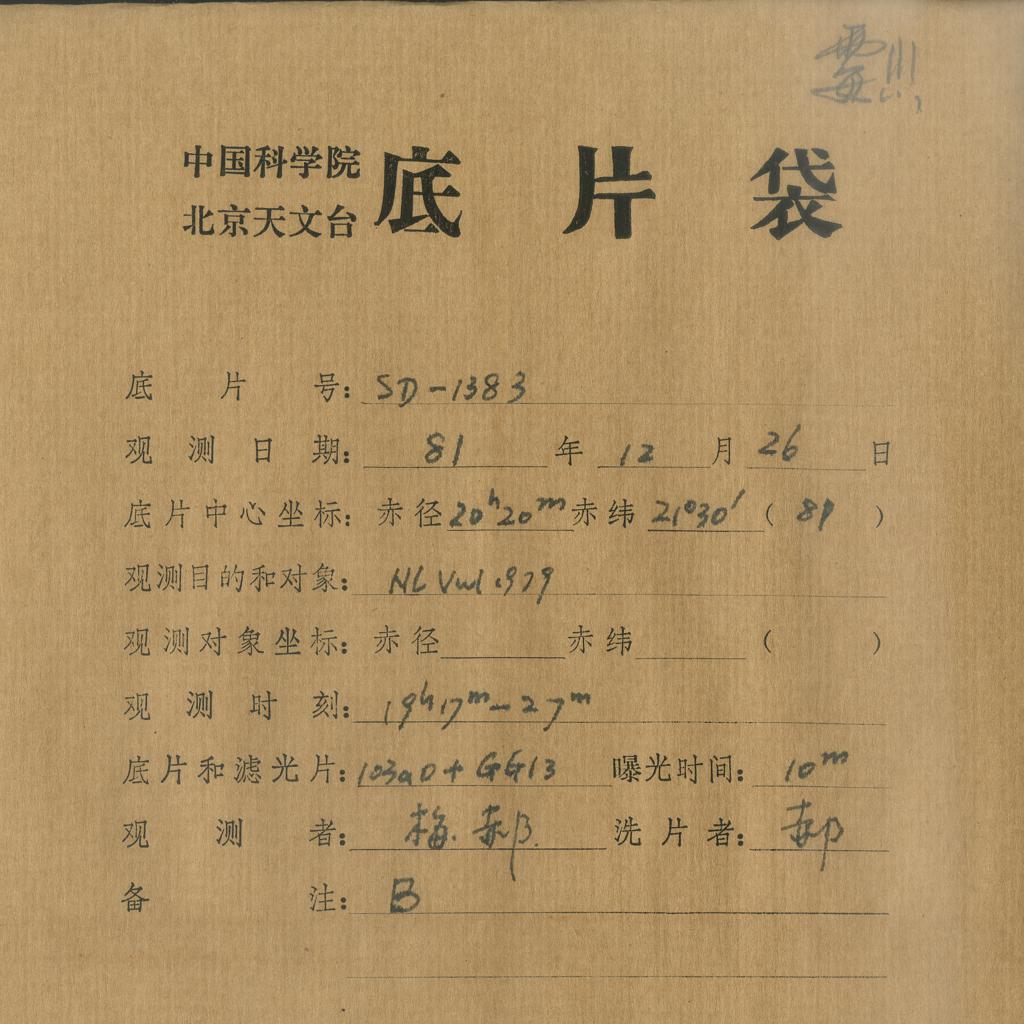 中国科学院
北京天文台
底片袋
底片号：SD-1383
观测日期：81年12月26日
底片中心坐标：赤径20h20m赤纬21°30′（81）
观测目的和对象：NL Vul 1979
观测对象坐标：赤径 赤纬 （ ）
观测时刻：19h17m-27m
底片和滤光片：103aO+GG13 曝光时间：10m
观测者：梅.郝. 洗片者：郝
备注：B